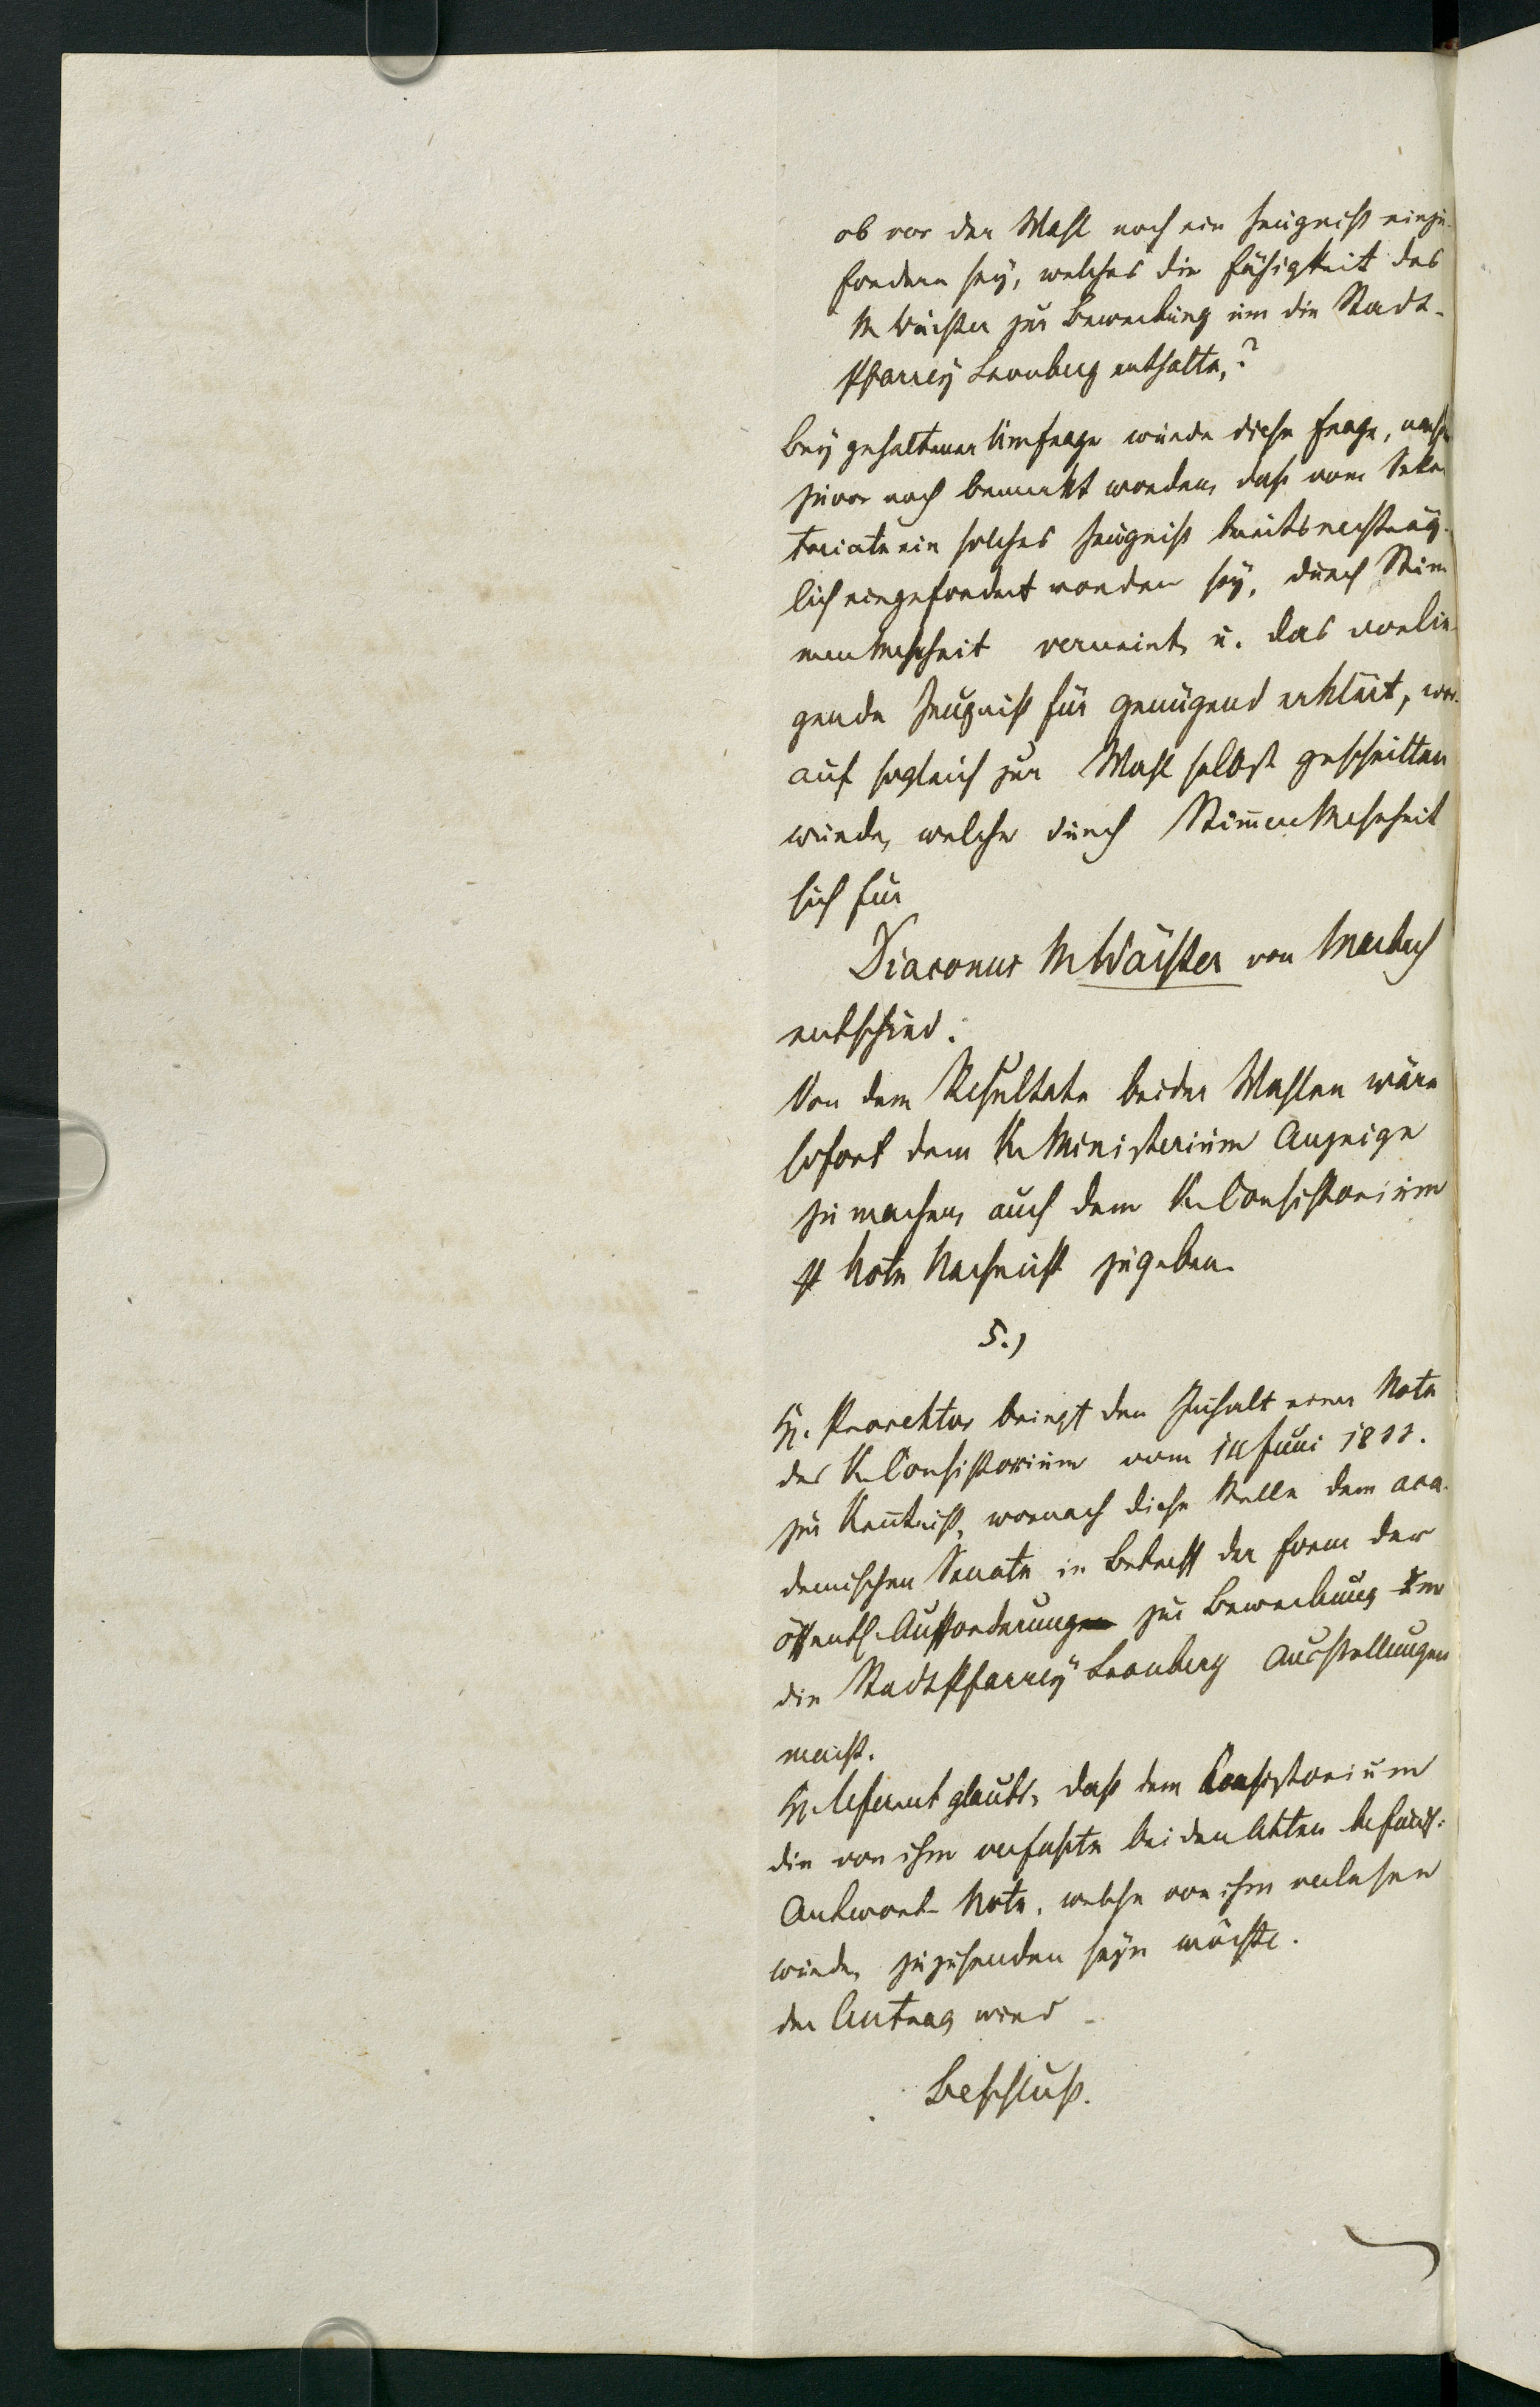 ob vor der Wahl noch ein Zeugniß einzu-
fordern sey, welches die Fähigkeit des
M Wächter zur Bewerbung um die Stadt-
Pfarrey Leonberg enthalte,?
Bey gehaltener Umfrage wurde diese Frage, nach
zuvor noch bemerkt worden, daß vom Sekre
tariate ein solches Zeugniß bereits nachträg-
lich eingefordert worden sey, durch Stim
menMehrheit verneint, u. das vorlie-
gende Zeugniß für genügend erklärt, wor-
auf sogleich zur Wahl selbst geschritten
wurde, welche durch StimmenMehrheit
sich für
Diaconus M Wächter von Marbach
entschied.
Von dem Resultate beider Wahlen wäre
sofort dem K. Ministerium Anzeige
zu machen, auch dem K. Consistorium
p Note Nachricht zu geben.
5.)
H. Prorektor bringt den Inhalt einer Note
des K. Consistorium vom Juni
zur Kenntniß, wornach diese Stelle dem aca-
demischen Senate in Betreff der Form der
öffentl. Aufforderung zur Bewerbung um
die StadtPfarrey Leonberg Ausstellungen
macht.
H. Referent glaubt, daß dem Consistorium
die von ihm verfaßte bei den Akten befindl.
Antwort-Note, welche von ihm verlesen
wurde, zuzusenden seyn möchte.
der Antrag wird
Beschluß.